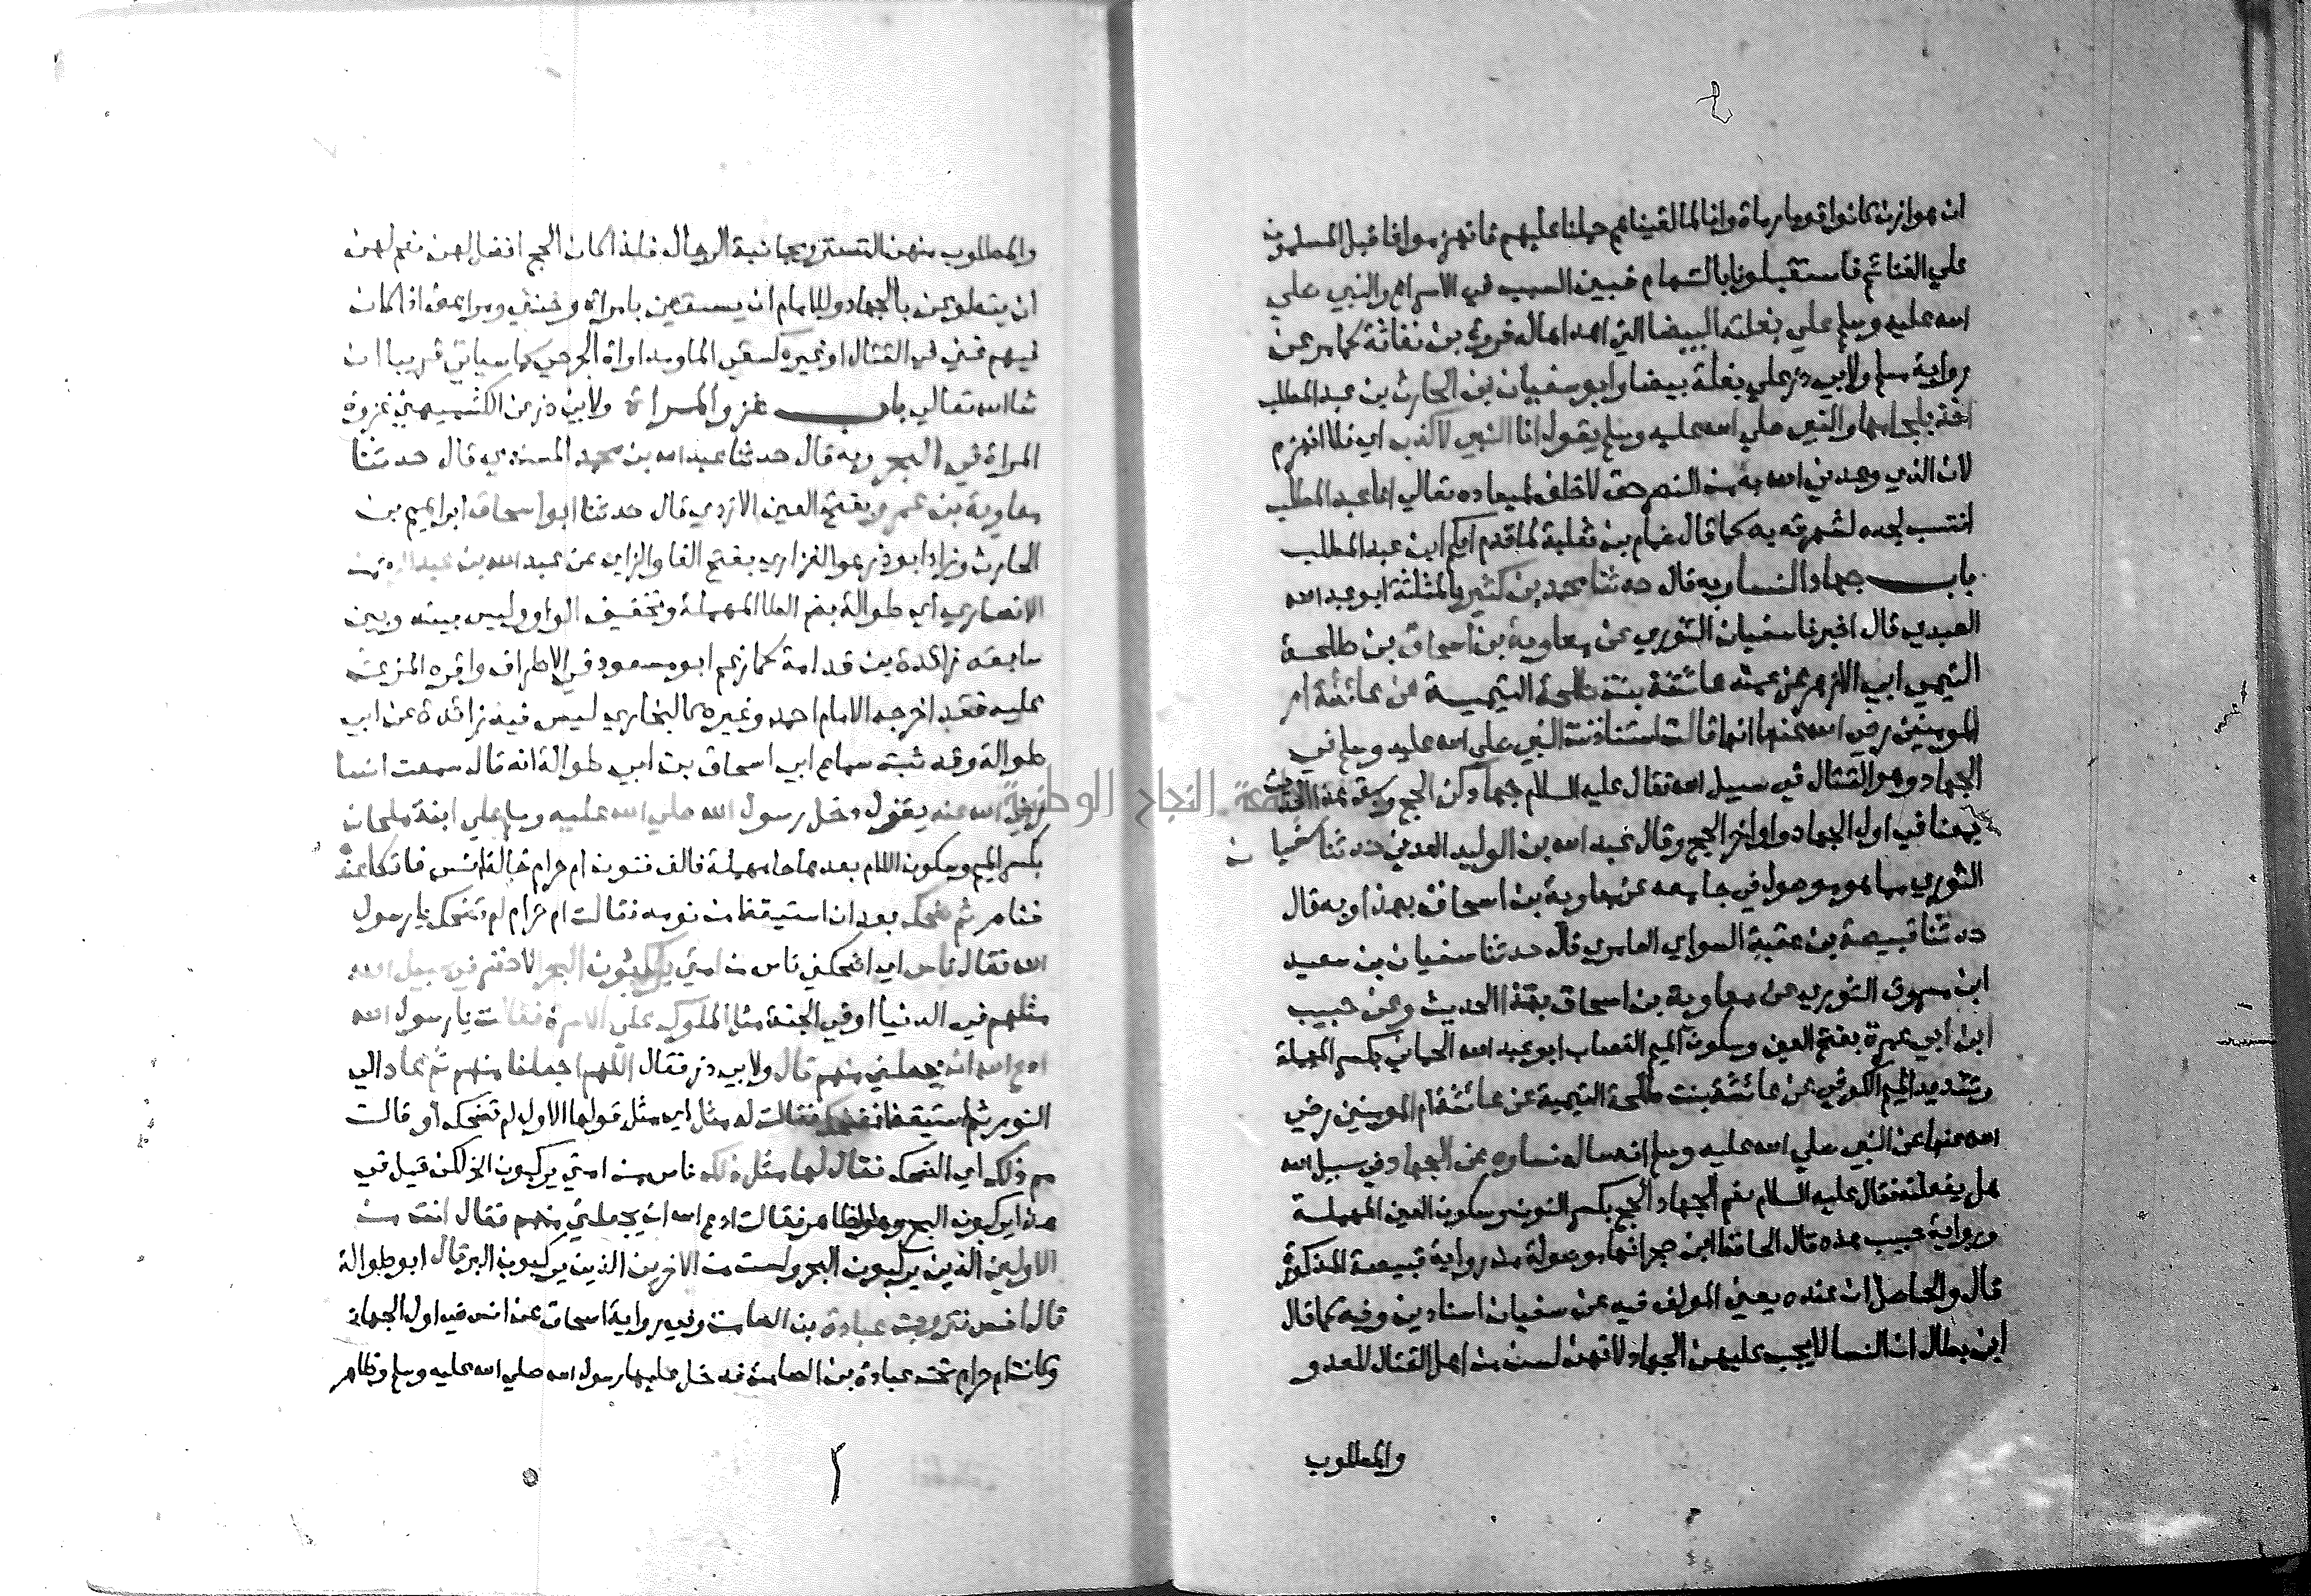 ان هوازن كانوا قوما رماة وانا لما لقيناهم حملنا عليهم فانهزموا فاقبل المسلمون
علي الغنائم فاستقبلونا بالسهام فبين السبب في الاسراع والنبي صلي
الله عليه وسلم علي بغلته البيضا التي اهداها له فروة بن نفاثة كما مر عن
رواية مسلم ولابي ذر علي بغلة بيضا وابو سفيان بن الحارث بن عبد المطلب
اخذ بلجامها والنبي صلي الله عليه وسلم يقول انا النبي لا كذب اي فلا انهزم
لان الذي وعدني الله به من النصر حق لا خلف لميعاده تعالي انا ابن عبد المطلب
انتسب لجده لشهرته به كما قال ضمام بن ثعلبة لما قدم ايكم ابن عبد المطلب
باب جهاد النسا وبه قال حدثنا محمد بن كثير بالمثلثة ابو عبد الله
العبدي قال اخبرنا سفيان الثوري عن معاوية بن اسحاق بن طلحة
التيمي ابي الازهر عن عمته عائشة بنت طلحة التيمية عن عائشة ام
المومنين رضي الله عنها انها قالت استاذنت النبي صلي الله عليه وسلم في
الجهاد وهو القتال في سبيل الله فقال عليه السلام جهادكن الحج وسبق هذا الحديث
بمعناه في اول الجهاد واواخر الحج وقال عبد الله بن الوليد العدني حدثنا سفيان
الثوري مما هو موصول في جامعه عن معاوية بن اسحاق بهذا وبه قال
حدثنا قبيصة بن عقبة السواي العامري قال حدثنا سفيان بن سعيد
ابن مسروق الثوري عن معاوية بن اسحاق بهذا الحديث وعن حبيب
ابن ابي عمرة بفتح العين وسكون الميم القصاب ابو عبد الله الحماني بكسر المهملة
وتشديد الميم الكوفي عن عائشة بنت طلحة التيمية عن عائشة ام المومنين رضي
الله عنها عن النبي صلي الله عليه وسلم انه ساله نساوه عن الجهاد في سبيل الله
هل يفعلنه فقال عليه السلام نعم الجهاد الحج بكسر النون وسكون العين المهملة
ورواية حبيب هذه قال الحافظ ابن حجر انها موصولة من رواية قبيصة المذكورة
قال والحاصل ان عنده يعني المولف فيه عن سفيان اسنادين وفيه كما قال
ابن بطال ان النسا لا يجب عليهن الجهاد لانهن لسن من اهل القتال للعدو
والمطلوب
والمطلوب منهن التستر ومجانبة الرجال فلذا كان الحج افضل لهن نعم لهن
ان يتطوعن بالجهاد وللامام ان يستعين بامراة وخنثي ومراهق اذا كان
فيهم غني في القتال او غيره كسقي الما ومداواة الجرحي كما سياتي قريبا ان
شا الله تعالي باب غزو المراة ولابي ذر عن الكشميهني غزوة
المراة في البحر وبه قال حدثنا عبد الله بن محمد المسندي قال حدثنا
معاوية بن عمرو بفتح العين الازدي قال حدثنا ابو اسحاق ابراهيم بن
الحارث وزاد ابو ذر هو الفزاري بفتح الفا والزاي عن عبد الله بن عبد الرحمن
الانصاري اي طوالة بضم الطا المهملة وتخفيف الواو وليس بينه وبين
سابقه زائدة بن قدامة كما زعم ابو مسعود في الاطراف واقره المزي
عليه فقد اخرجه الامام احمد وغيره كالبخاري ليس فيه زائدة عن ابي
طوالة وقد ثبت سماع ابي اسحاق من ابي طوالة انه قال سمعت انسا
رضي الله عنه يقول دخل رسول الله صلي الله عليه وسلم علي ابنة ملحان
بكسر الميم وسكون اللام بعدها حا مهملة فالف فنون ام حرام خالة انس فاتكا عندها
فنام ثم ضحك بعد ان استيقظ من نومه فقالت ام حرام لم تضحك يا رسول
الله فقال ناس اي اضحكني ناس من امتي يركبون البحر الاخضر في سبيل الله
مثلهم في الدنيا او في الجنة مثل الملوك علي الاسرة فقالت يا رسول الله
ادع الله ان يجعلني منهم قال ولابي ذر فقال اللهم اجعلها منهم ثم عاد الي
النوم ثم استيقظ فضحك فقالت له مثل اي مثل قولها الاول لم تضحك او قالت
مم ذلك اي الضحك فقال لها مثل ذلك ناس من امتي يركبون الخ لكن قيل في
هذا يركبون البر وهو الظاهر فقالت ادع الله ان يجعلني منهم فقال انت من
الاولين الذين يركبون البحر ولست من الاخرين الذين يركبون البر قال ابو طوالة
قال انس فتزوجت عبادة بن الصامت وفي رواية اسحاق عن انس في اول الجهاد
وكانت ام حرام تحت عبادة بن الصامت فدخل عليها رسول الله صلي الله عليه وسلم وظاهر
جامعة النجاح الوطنية